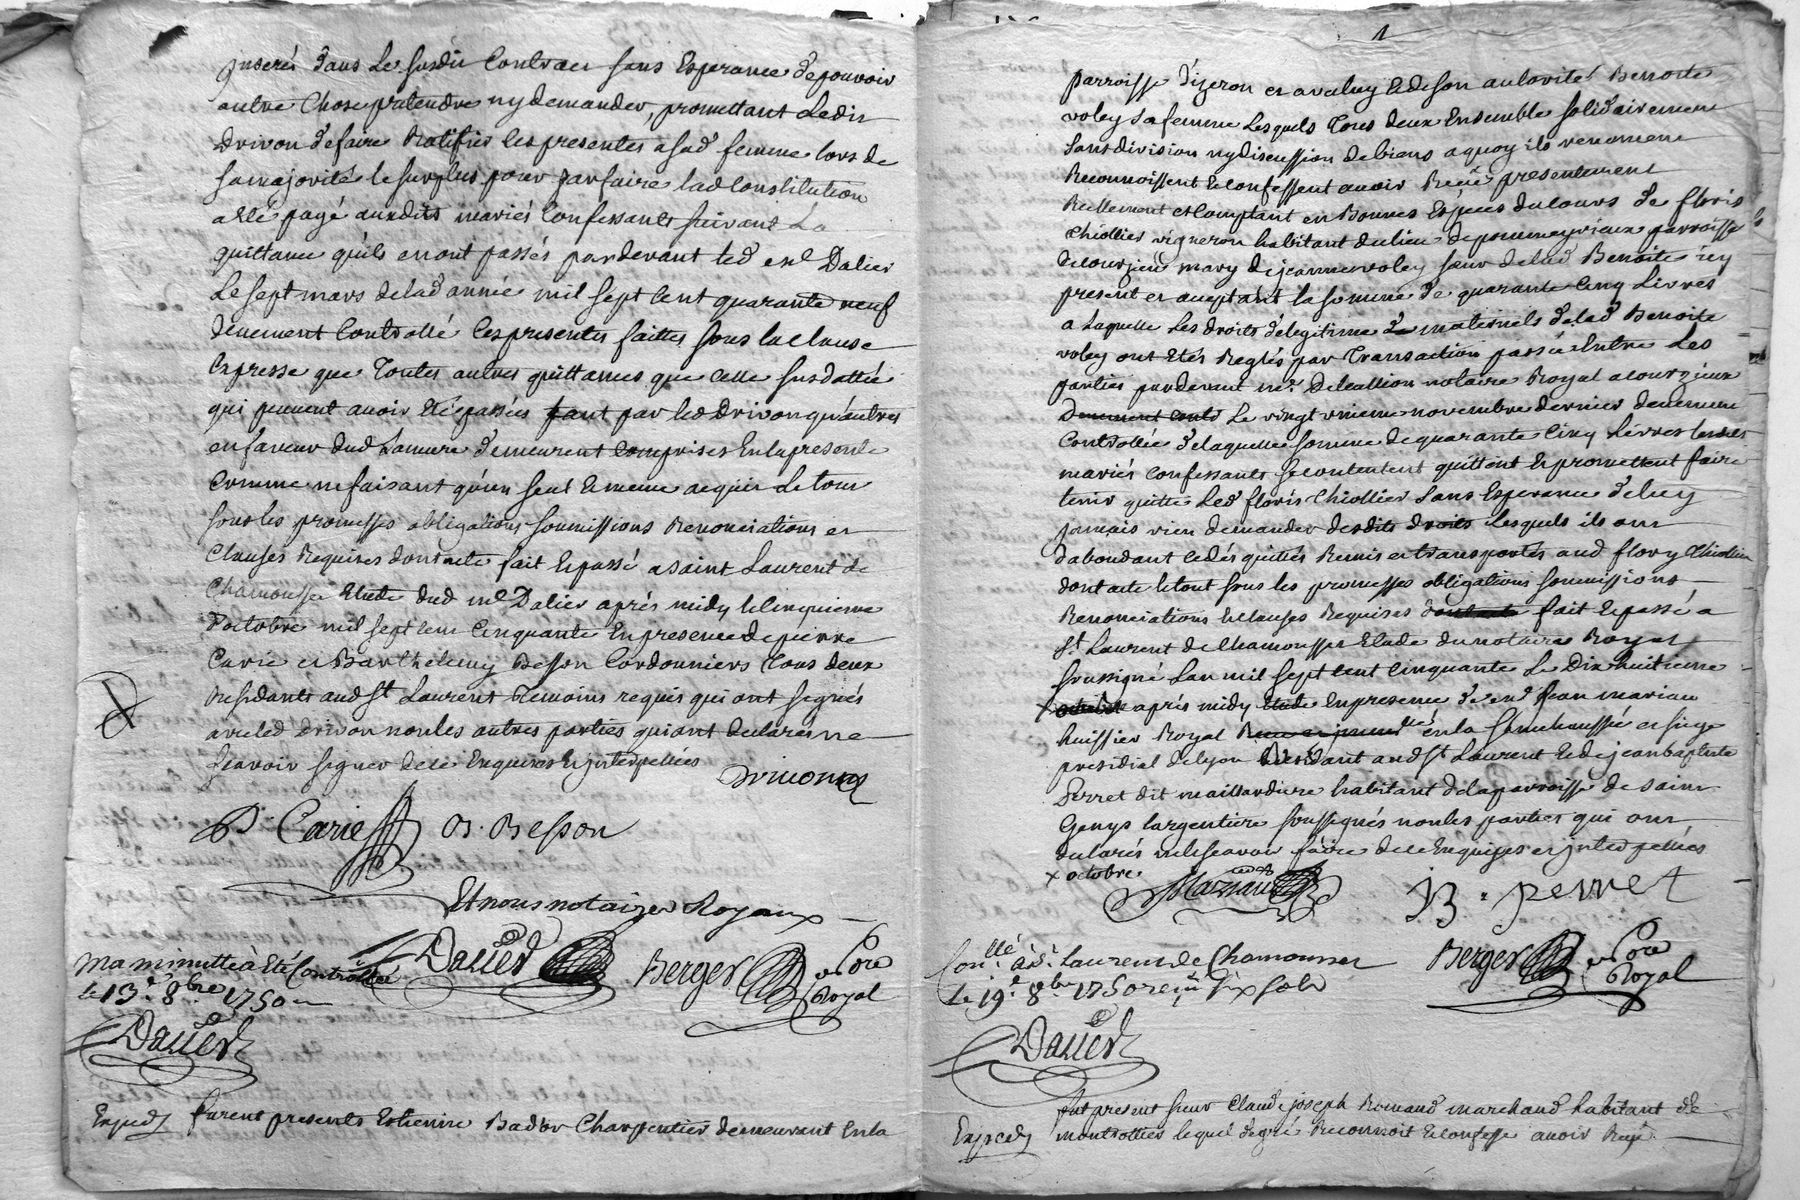 jnserés dans Le susdit Contract sans Esperance de pouvoir
autre Chose pretendre ny demander, promettant Ledit
Drivon de faire Ratifier les presentes a sad femme lors de
sa majorité le surplus pour parfaire lad Constitution
a été payé auxdits mariés Confessants suivant La
quittance qu'ils en ont passés pardevant led me Dalier
Le sept mars de lad année mil sept Cent quarante neuf
deuement Controllé Ces presentes faittes sous la Clause
Expresse que Toutes autres quittances que Celle susdattée
qui peuvent avoir Eté passées tant par led Drivon qu'autres
en faveur dud Lamure demeurent Comprises En la presente
Comme ne faisant qu'un seul & meme acquit Le tout
sous les promesses obligations soumissions Renonciations et
Clauses Requises dont acte fait & passé a saint Laurent de
Chamousset Etude dud me Dalier aprés midy le Cinquieme
d'octobre mil sept Cent Cinquante En presence de pierre
Carie et Barthelemy Besson Cordonniers Tous deux
Residants aud st Laurent Temoins requis qui ont segnés
avec led Drivon non les autres parties qui ont declarés ne
sçavoir signer de ce Enquises & jnterpellées
Drivon
P. Carie B. Besson
Et nous notaires Royaux
Dalier Berger no.re Royal
Ma minutte à Eté Controllée
le 13e 8bre 1750
Dalier
Exped furent presents Estienne Bador Charpentier demeurant En la
1
parroisse d'izeron et avaluy & de son authorité Benoite
voley sa femme Lesquels Tous deux Ensemble solidairement
sans division ny discussion de biens a quoy ils renoncent
Reconnoissent & confessent avoir Receu presentement
Reellement et Comptant en Bonnes Espéces du Cours de floris
Chiollier vigneron habitant du lieu de pomeyrieux parroisse
de courzieu mary de jeanne voley sœur de lad Benoite icy
present et aceptant la somme de quarante Cinq Livres
a Laquelle Les droits de legitime maternels de lad Benoite
voley ont Etés Reglés par Transaction passée Entre Les
parties pardevant me Delcallion notaire Royal a courzieux
Le vingt unieme novembre dernier deuement
Controllée de laquelle somme de quarante Cinq Livres lesdits
mariés Confessants se contentent quittent & promettent faire
tenir quitte Led floris Chiollier sans Esperance de luy
jamais rien demander desdits droits Lesquels ils ont
d'abondant cedés quittés Remis et transportés aud flory Chiollier
dont acte le tout sous les promesses obligations soumissions
Renonciations & clauses Requises fait & passé a
St Laurent de Chamousset Etude du notaire Royal
soussigné Lan mil sept Cent Cinquante Le Dix huitieme
x aprés midy En presence de me jean mariau
huissier Royal en la senechaussée et siege
presidial de Lyon Residant aud st Laurent & de jean baptiste
Perret dit maillardiere habitant de la parroisse de saint
Genys largentiere soussignés non les parties qui ont
declarés ne le sçavoir faire de ce Enquises et jnterpellées
x octobre.
Mariau B. perret
Conllé à St Laurens de Chamousset
Le 19e 8bre 1750 reçu Six sols
Berger no.re Royal
Dalier
Exped fut present sieur Claude joseph Romand marchand habitant de
montrottier lequel de gré Reconnoit & confesse avoir Reçu